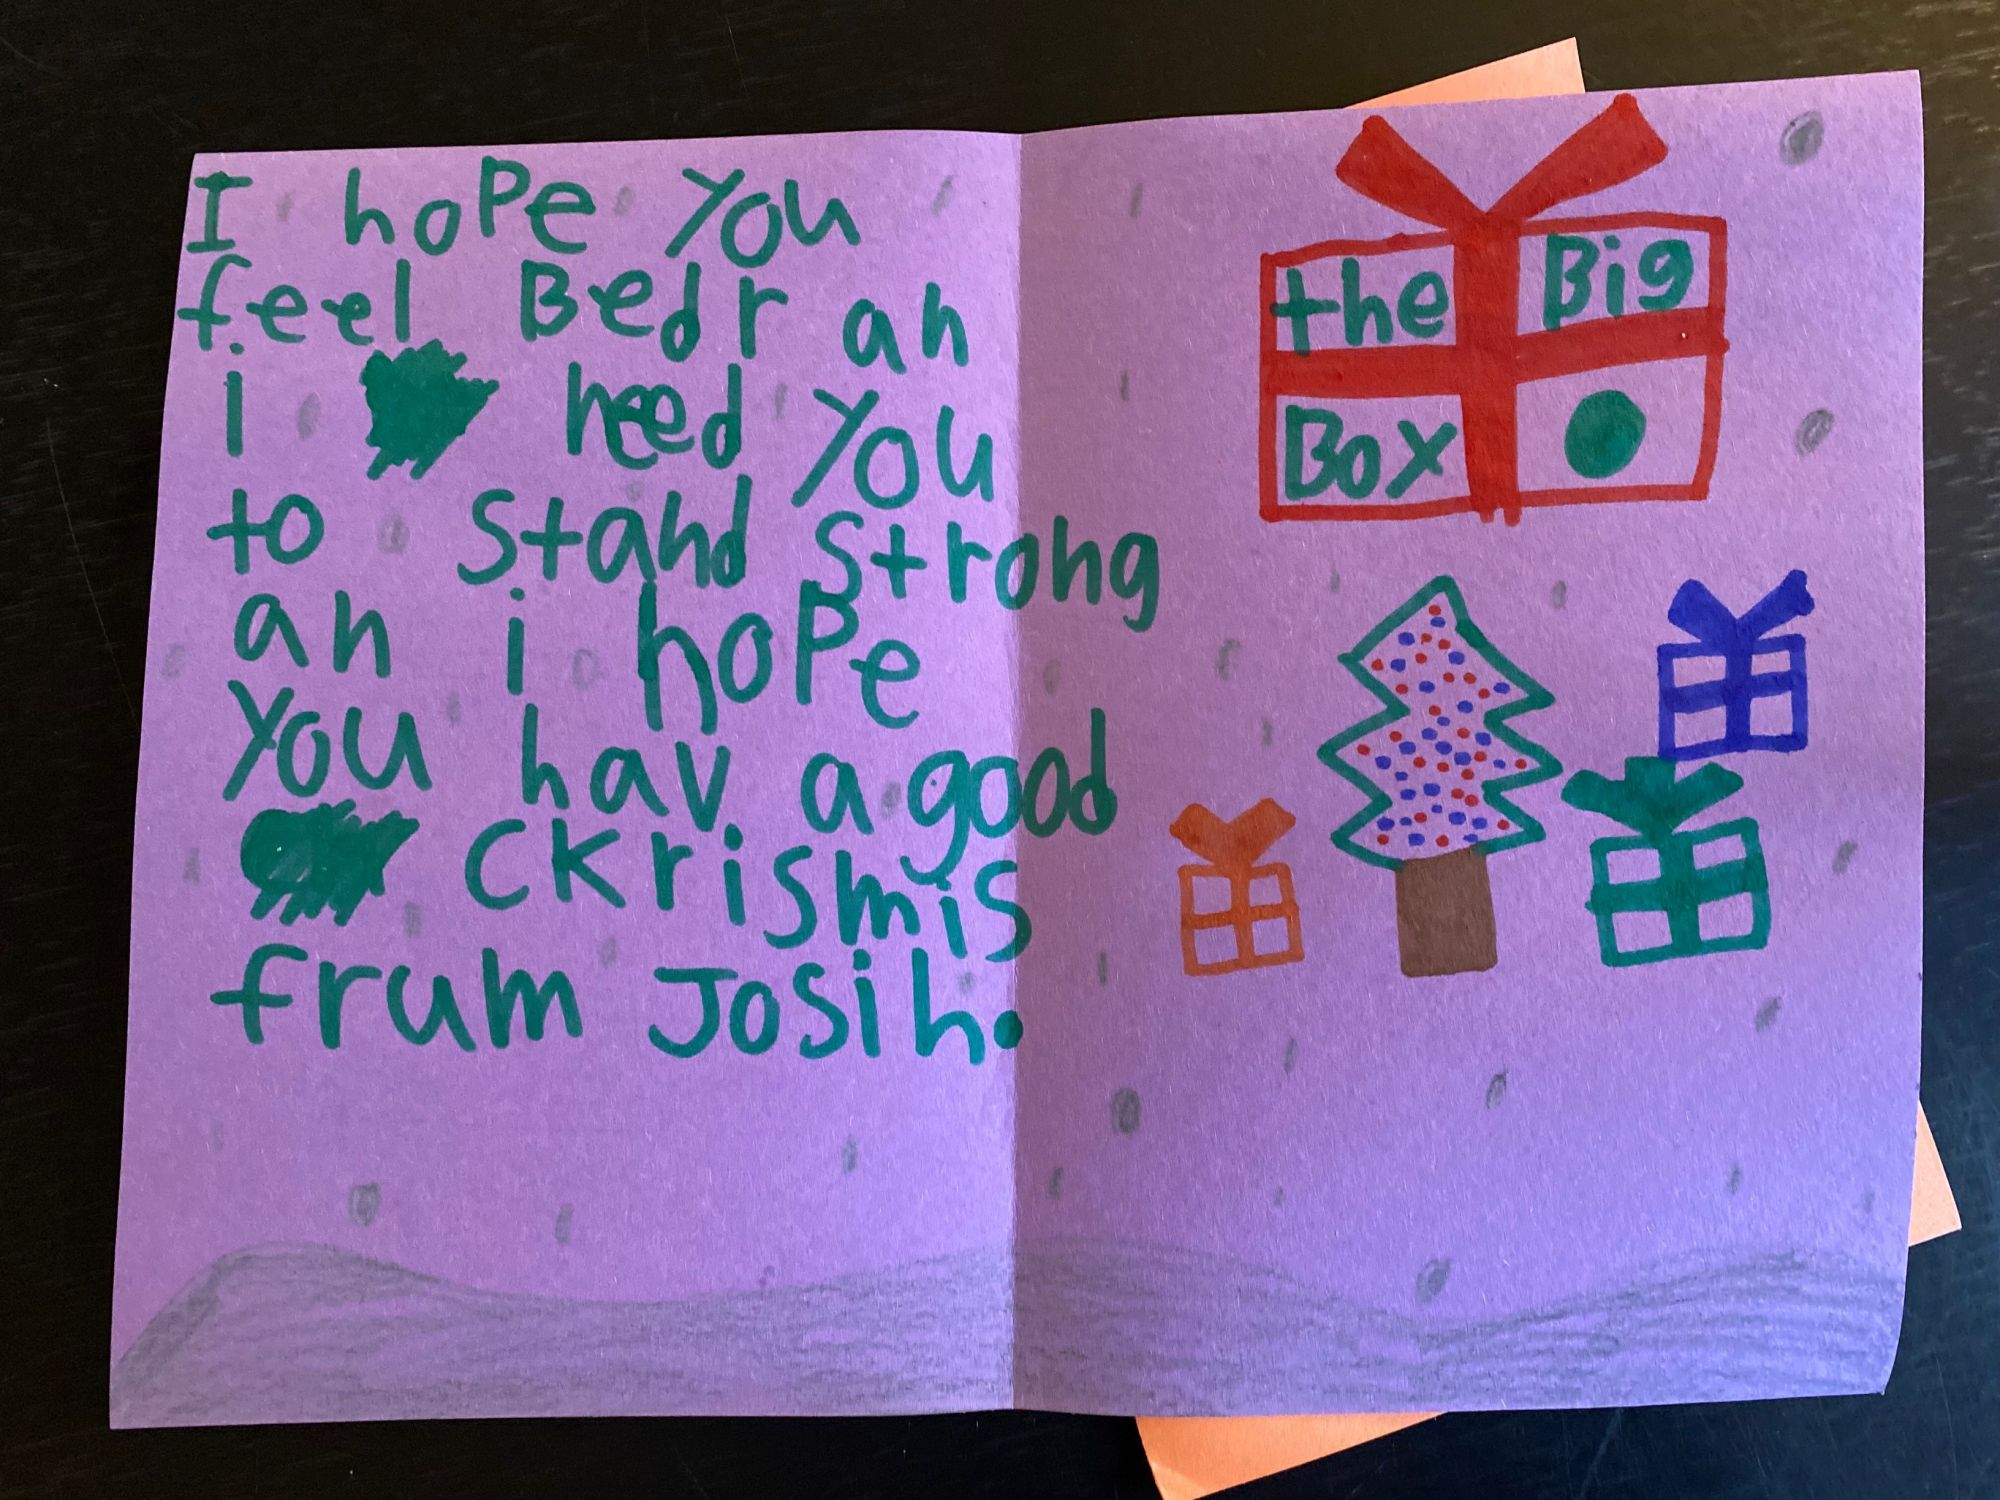 I hope you
feel Bedr an
i need you
to stand strong
an i hope
you hav a good
Ckrismis
frum Josih.
the Big
Box